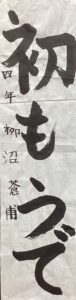 初もうで
四年 柳沼 蒼甫